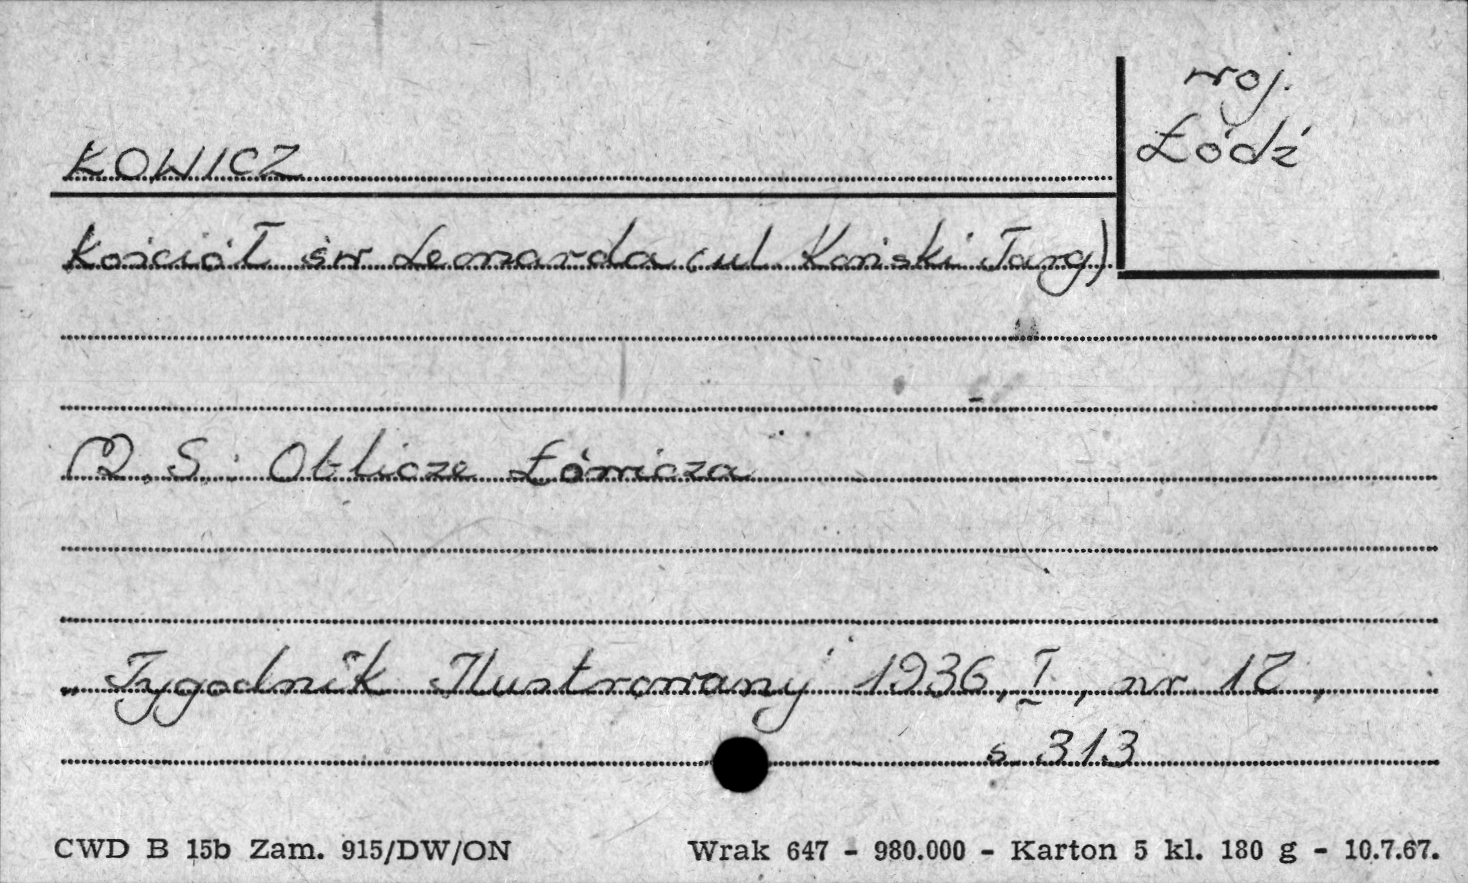 woj.
Łódź
ŁOWICZ
Kościół św Leonarda (ul Koński Targ)
M. S. : Oblicze Łowicza
„Tygodnik Ilustrowany" 1936, I, nr 17,
s. 313
CWD B 15b Zam. 915/DW/ON Wrak 647 - 980.000 - Karton 5 kl. 180 g - 10.7.67.